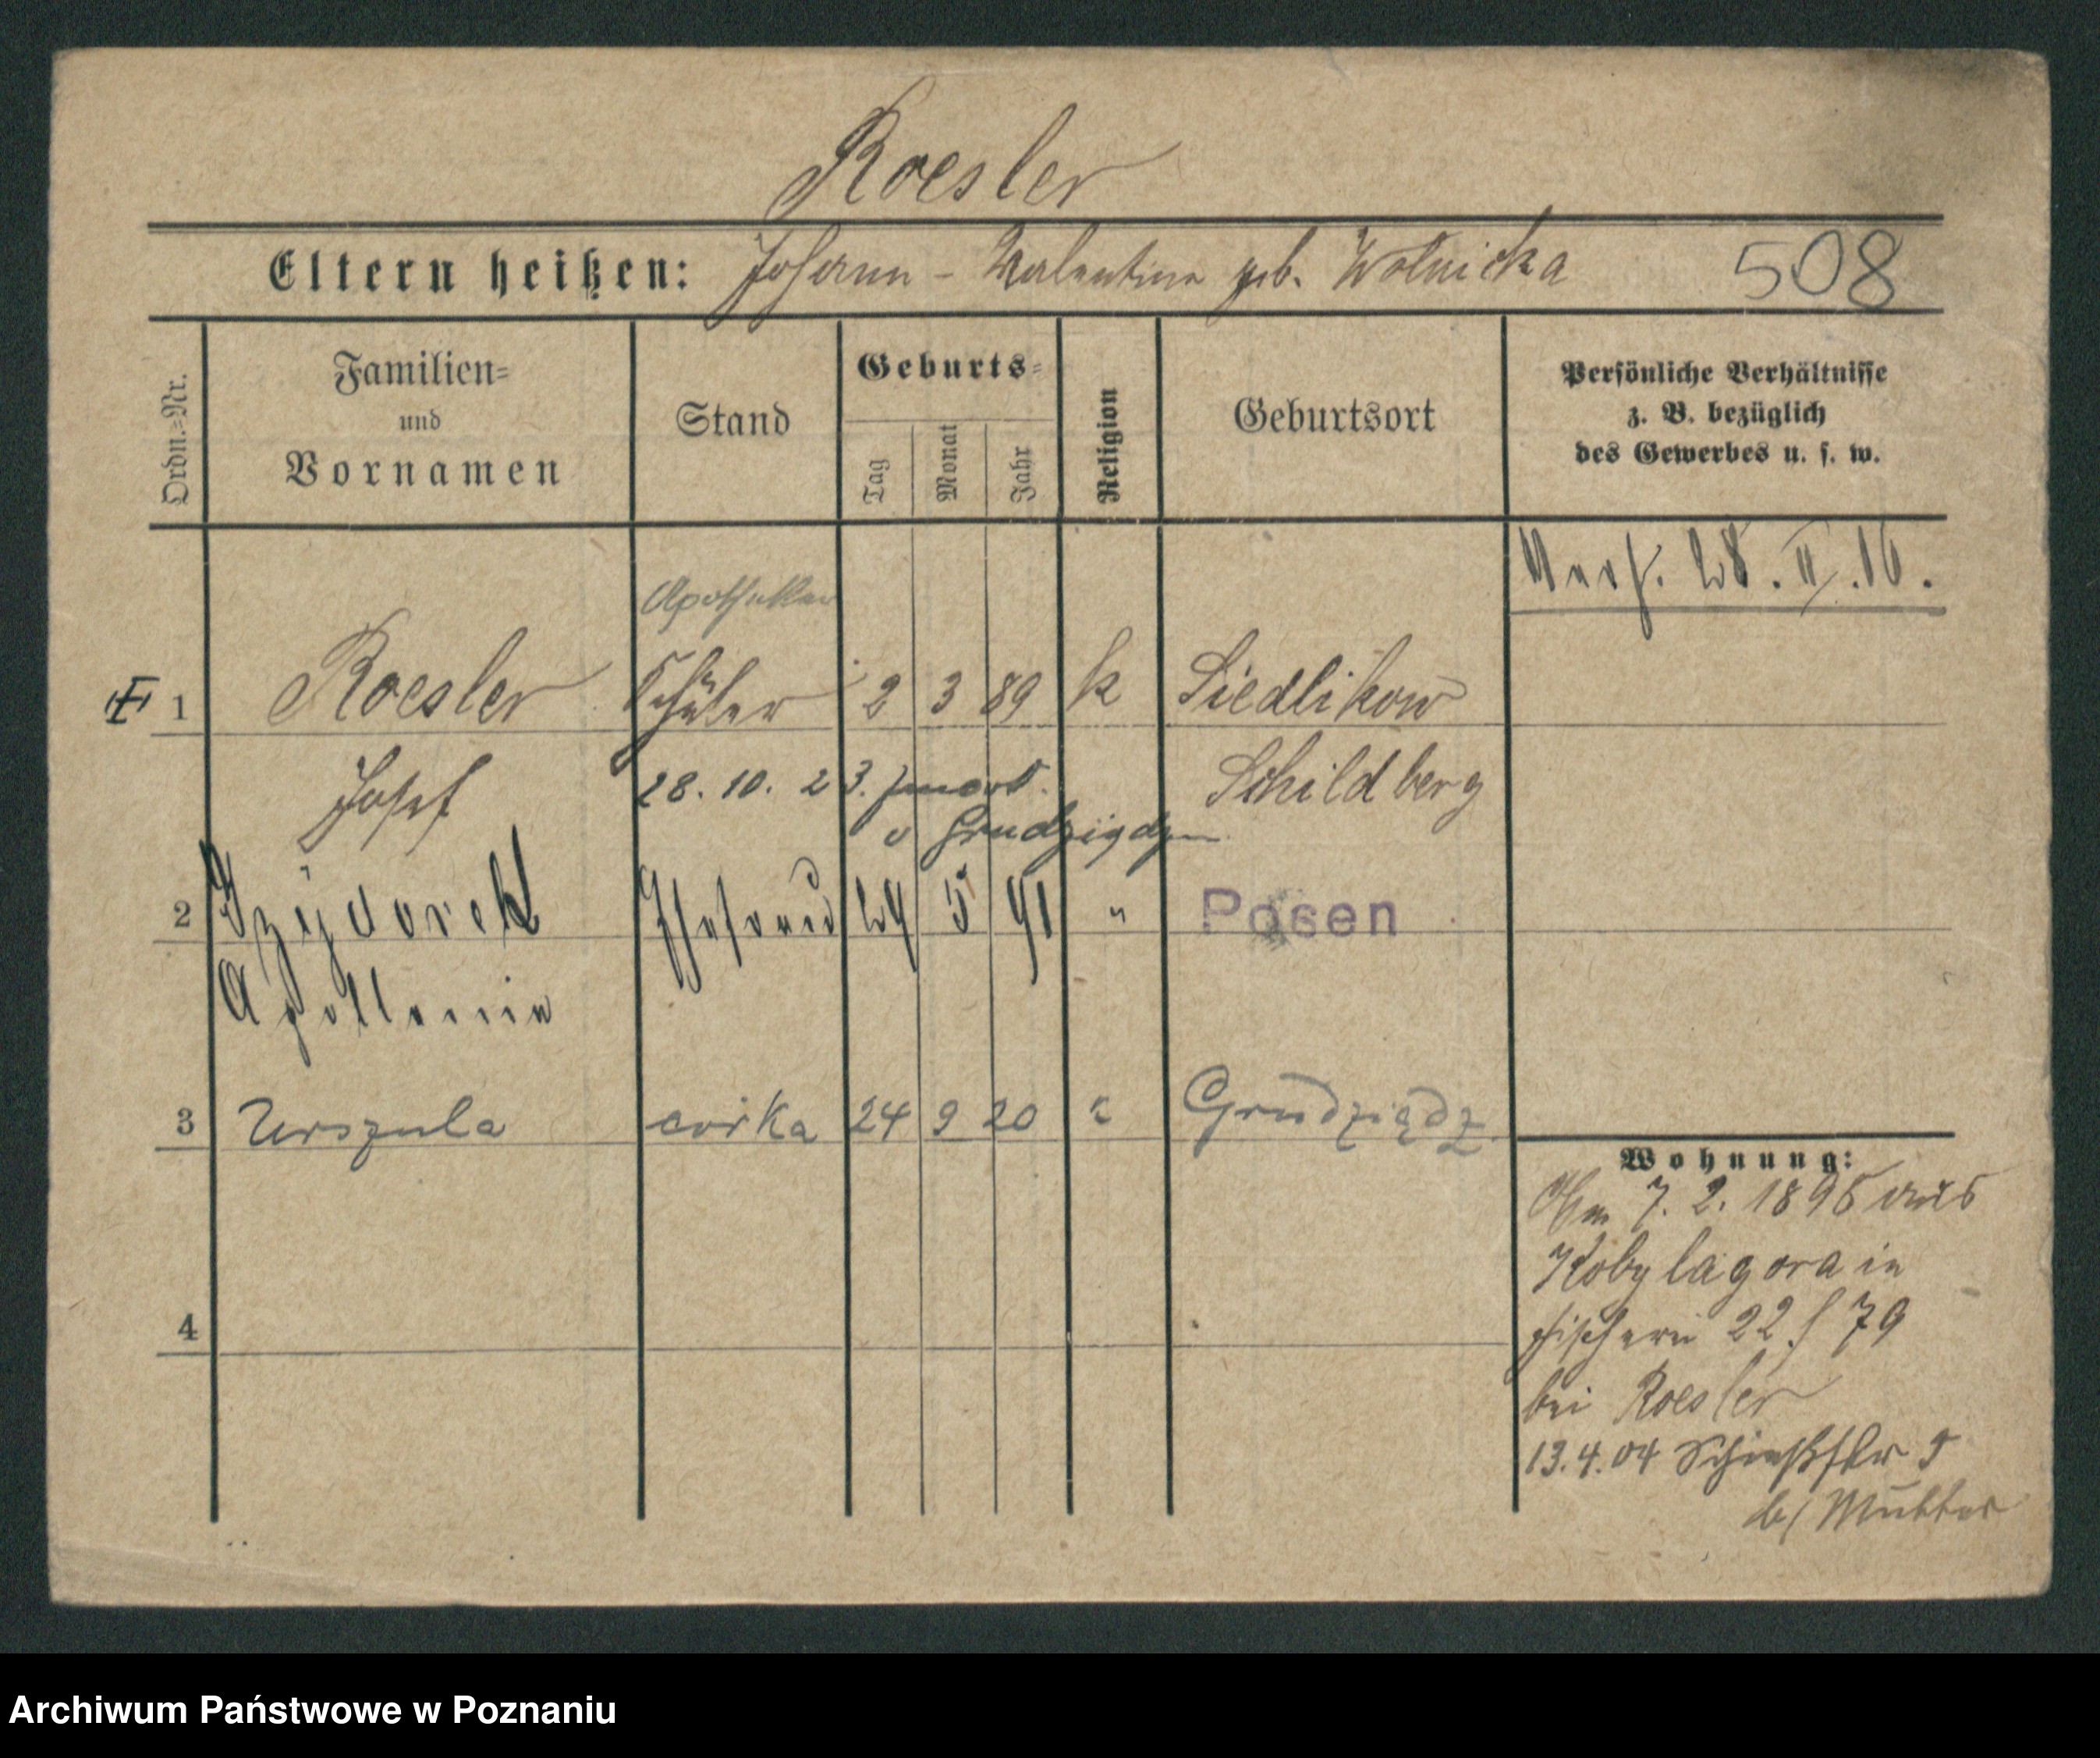 Roesler
Eltern heißen: Johann - Valentine geb. Wolnicka 508
Ordn.=Nr.
Familien=
und
Vornamen
Stand
Geburts=
Tag
Monat
Jahr
Religion
Geburtsort
Persönliche Verhältnisse
z. B. bezüglich
des Gewerbes u. s. w.
Verh. 28.II.16.
Apotheker
1 Roesler Schüler 2 3 89 k Siedlikow
Josef 28.10.23. zmarł Schildberg
w Grudziądzu
2 Izydorek Ehefrau 29 5 91 " Posen
Apollonia
3 Urszula córka 24 9 20 " Grudziądz
4
Wohnung:
Am 7.2.1896 aus
Kobylagora in
Fischerei 22 f 79
bei Roesler
13.4.04 Schießstr 5
b/ Mutter
Archiwum Państwowe w Poznaniu